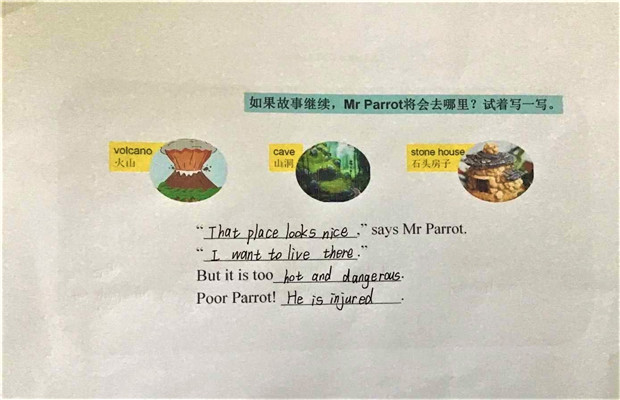 如果故事继续，Mr Parrot将会去哪里？试着写一写。
volcano
火山
cave
山洞
stone house
石头房子
“That place looks nice.” says Mr Parrot.
“I want to live there.”
But it is too hot and dangerous.
Poor Parrot! He is injured.